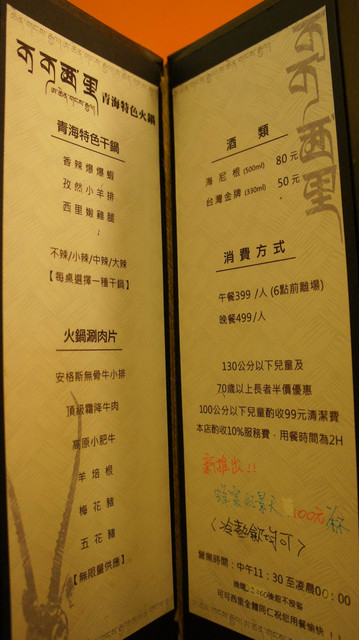 可可西里 青海特色火鍋
青海特色干鍋
香辣爆爆蝦
孜然小羊排
西里嫩雞腿
不辣/小辣/中辣/大辣
【每桌選擇一種干鍋】
火鍋涮肉片
安格斯無骨牛小排
頂級霜降牛肉
高原小肥牛
羊培根
梅花豬
五花豬
【無限量供應】
可可西里
酒類
海尼根 (500ml) 80元
台灣金牌 (330ml) 50元
消費方式
午餐399 /人 (6點前離場)
晚餐499/人
130公分以下兒童及
70歲以上長者半價優惠
100公分以下兒童酌收99元清潔費
本店酌收10%服務費，用餐時間為2H
新推出!!
蜂蜜紅景天 100元/杯
<冷熱飲均可>
營業時間：中午11：30 至凌晨00：00
後恕不接客
可可西里全體同仁祝您用餐愉快！！